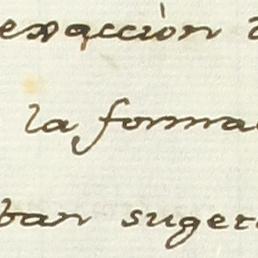 exacción d
la forma
ban suger